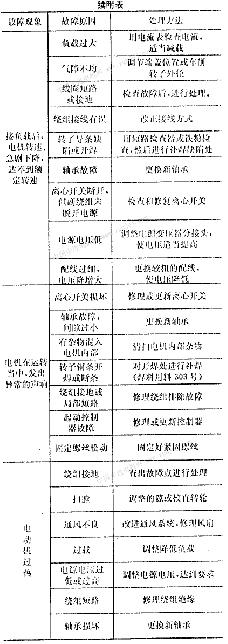 续附表
故障现象
故障原因
处理方法
接负载后，
电机转速
急剧下降，
达不到额
定转速
负载过大
用电流表检查电流，
适当减载
气隙不均
调节端盖位置或车削
转子外径
线圈短路
或接地
检查故障后，进行处理。
绕组接线有误
改正接线方式
转子导条缺
陷或开焊
用短路检查器或铁粉检
查，然后进行补焊缺陷处
轴承故障
更换新轴承
离心开关断开，
脱开电源
检查和修复离心开关
电源电压低
调整电源变压器分接头，
使电压适当提高
配线过细，
电压降增大
更换较粗的配线，
使电压降低
电机在运转
当中，发出
异常的声响
离心开关损坏
修理或更新离心开关
轴承故障，
间隙过小
更换新轴承
有杂物混入
电机内部
清扫电机内部杂物
转子铜条开
焊或断条
对开焊处进行补焊
（焊料用料303号）
绕组接地或
局部短路
修理绕组排除故障
起动控制
器故障
修理或更新控制器
固定螺丝松动
固定好紧固螺丝
电动机过热
绕组接地
查出故障点进行处理
扫膛
通风不良
改进通风系统，修理风扇
过载
调整降低负载
电源电压过
低或过高
调整电源电压，达到要求
绕组短路
修理绕组绝缘
轴承损坏
更换新轴承